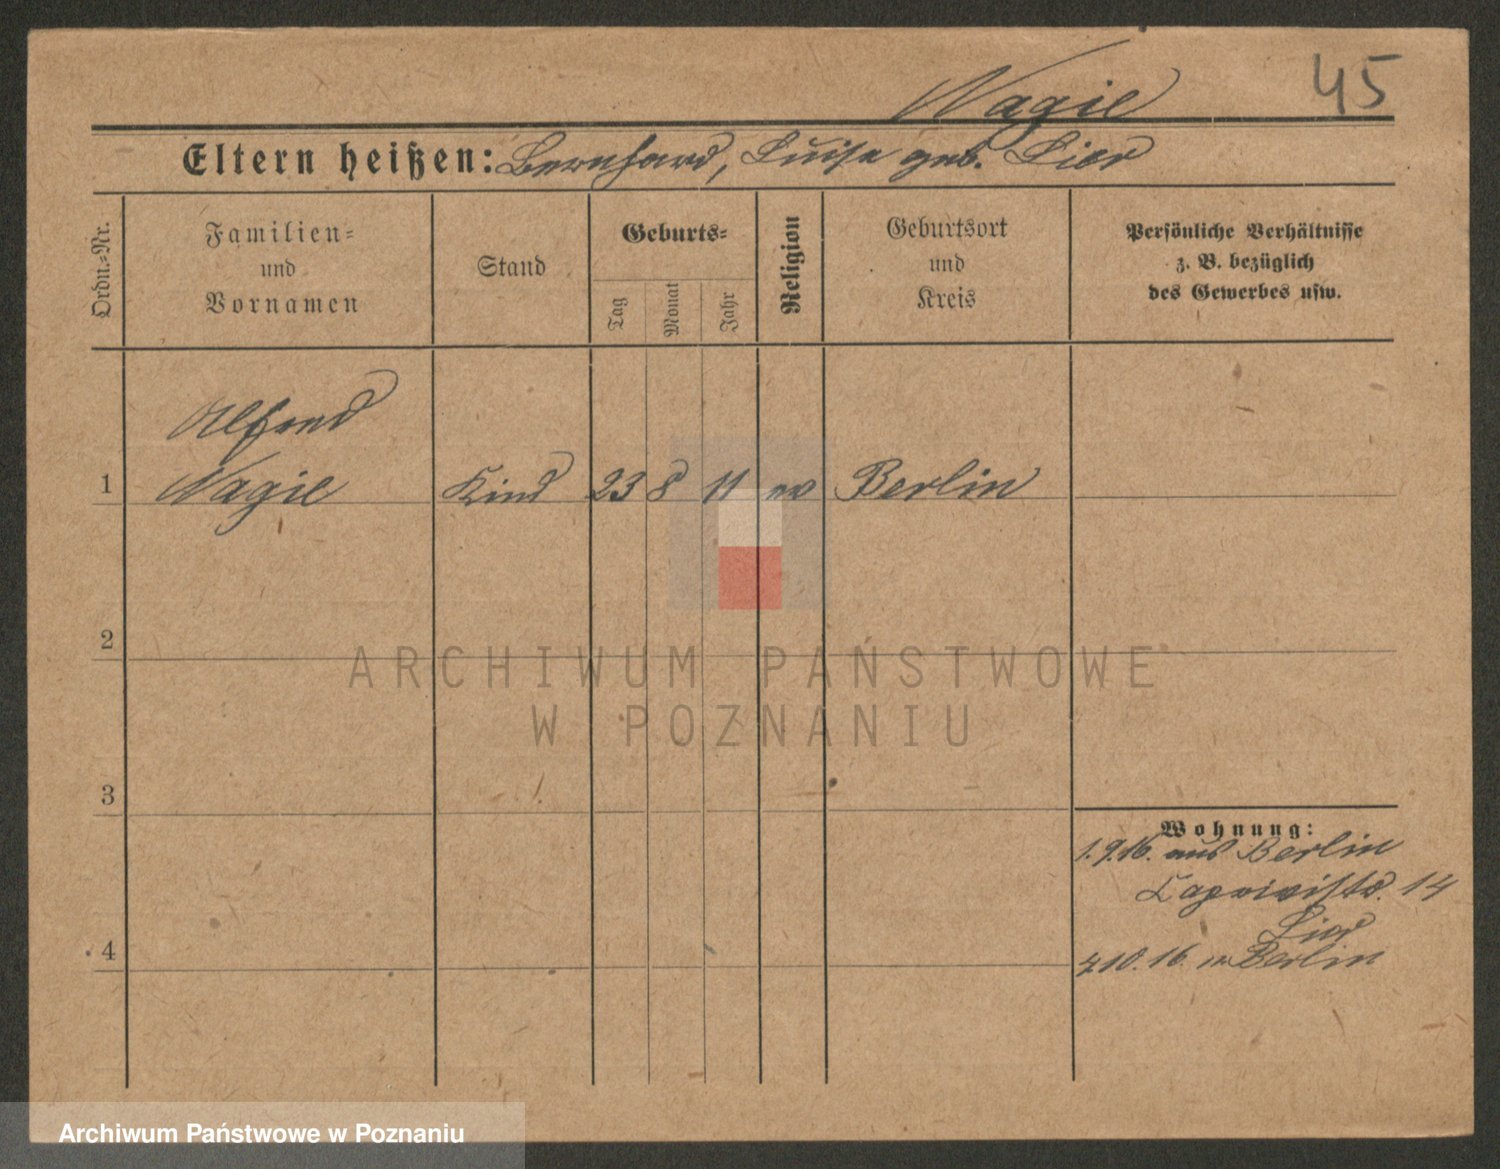 Nagil 45
Eltern heißen: Bernhard, Luise geb. Lier
Ordn.-Nr.
Familien-
und
Vornamen
Stand
Geburts-
Tag
Monat
Jahr
Religion
Geburtsort
und
Kreis
Persönliche Verhältnisse
z. B. bezüglich
des Gewerbes usw.
Alfred
1 Nagil Kind 23 8 11 ev Berlin
2
ARCHIWUM PAŃSTWOWE
W POZNANIU
3
Wohnung:
1.9.16. aus Berlin
Caprivistr. 14
Lier
4
10.16. n Berlin
Archiwum Państwowe w Poznaniu